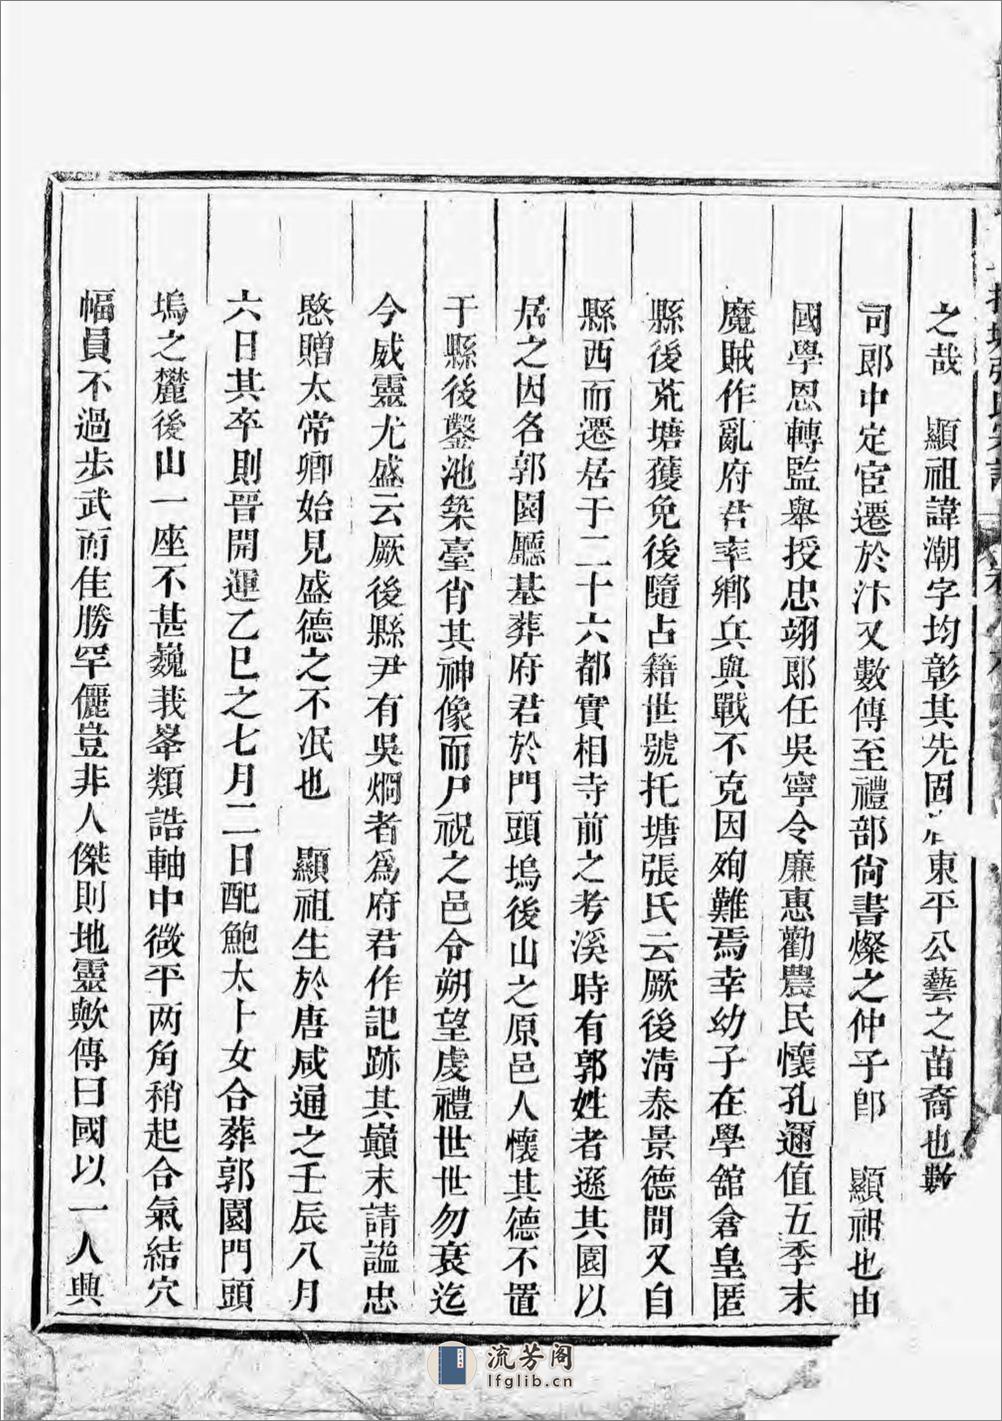 之哉　顯祖諱潮字均彰其先固居東平公藝之苗裔也數
司郎中定宦遷於汴又數傳至禮部尚書燦之仲子郎　顯祖也由
國學恩轉監舉授忠翊郎任吳寧令廉惠勸農民懷孔邇值五季末
魔賊作亂府君率鄉兵與戰不克因殉難焉幸幼子在學舘倉皇匿
縣後荒塘獲免後隨占籍世號托塘張氏云厥後淸泰景德間又自
縣西而遷居于二十六都實相寺前之考溪時有郭姓者遜其園以
居之因名郭園廳基葬府君於門頭塢後山之原邑人懷其德不置
于縣後鑿池築臺肖其神像而尸祝之邑令朔望虔禮世世勿衰迄
今威靈尤盛云厥後縣尹有吳烱者為府君作記跡其巔末請謚忠
愍贈太常卿始見盛德之不泯也　顯祖生於唐咸通之壬辰八月
六日其卒則晉開運乙巳之七月二日配鮑太卜女合葬郭園門頭
塢之麓後山一座不甚巍我峯類誥軸中微平两角稍起合氣結穴
幅員不過步武而佳勝罕儷豈非人傑則地靈歟傳曰國以一人興
流芳阁
lfglib.cn